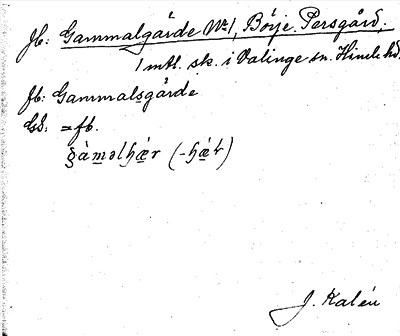 Jb: Gammalgårde No 1, Börje Persgård,
1 mtl. sk. i Valinge sn. Himle hd.
fb: Gammalsgårde
Gd: = fb.
J. Kalén